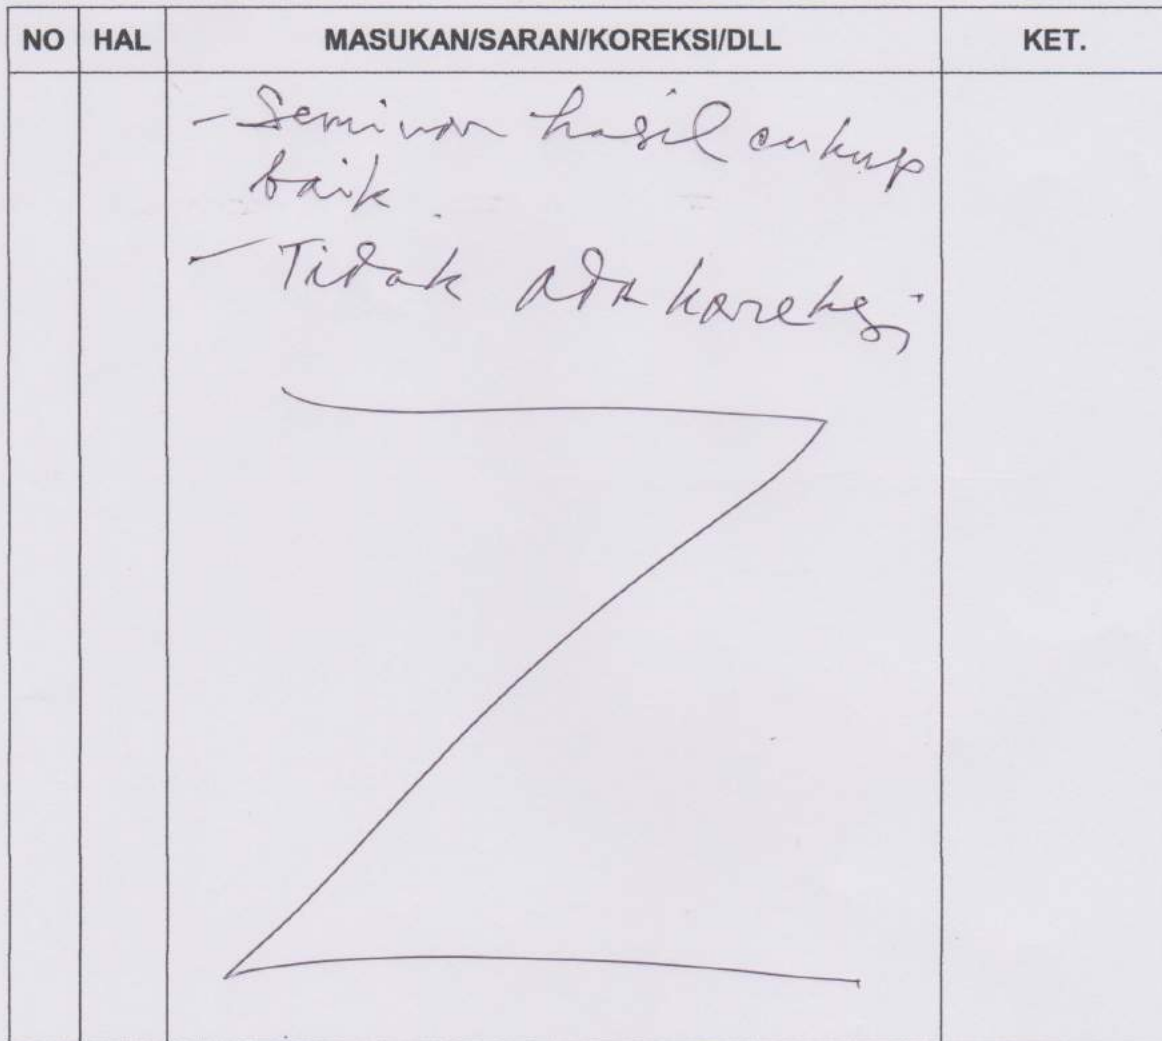 NO HAL MASUKAN/SARAN/KOREKSI/DLL KET.
- Seminar hasil cukup
baik.
- Tidak ada koreksi